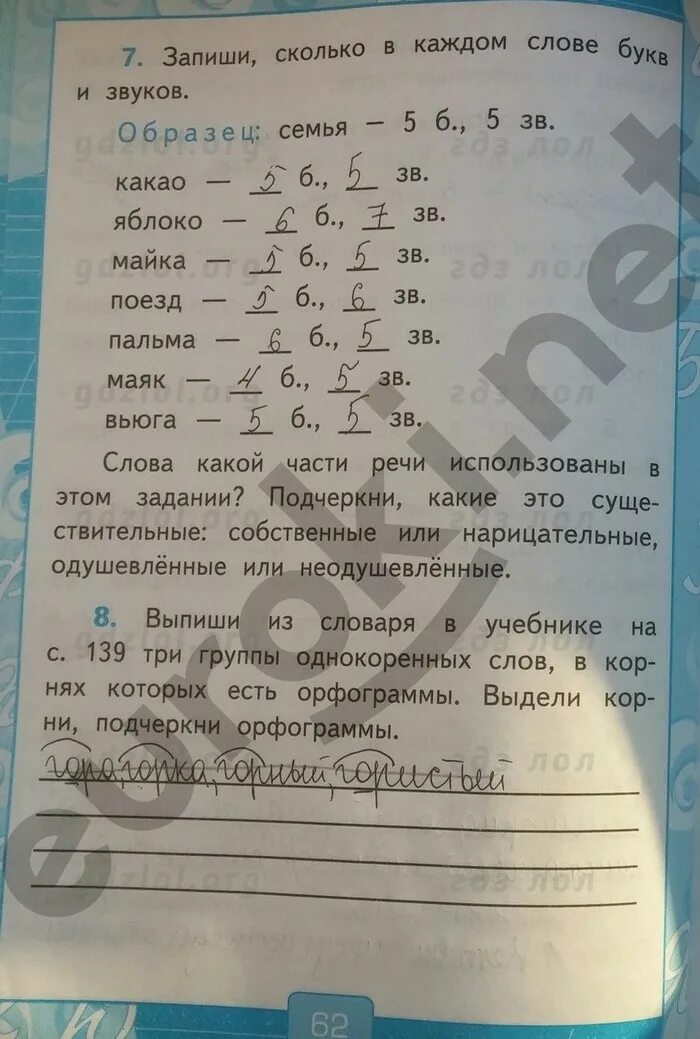 7. Запиши, сколько в каждом слове букв
и звуков.
Образец: семья – 5 б., 5 зв.
какао – 5 б., 5 зв.
яблоко – 6 б., 7 зв.
майка – 5 б., 5 зв.
поезд – 5 б., 6 зв.
пальма – 6 б., 5 зв.
маяк – 4 б., 5 зв.
вьюга – 5 б., 5 зв.
Слова какой части речи использованы в
этом задании? Подчеркни, какие это суще-
ствительные: собственные или нарицательные,
одушевлённые или неодушевлённые.
8. Выпиши из словаря в учебнике на
с. 139 три группы однокоренных слов, в кор-
нях которых есть орфограммы. Выдели кор-
ни, подчеркни орфограммы.
гора, горка, горный, гористый
62
euroki.net